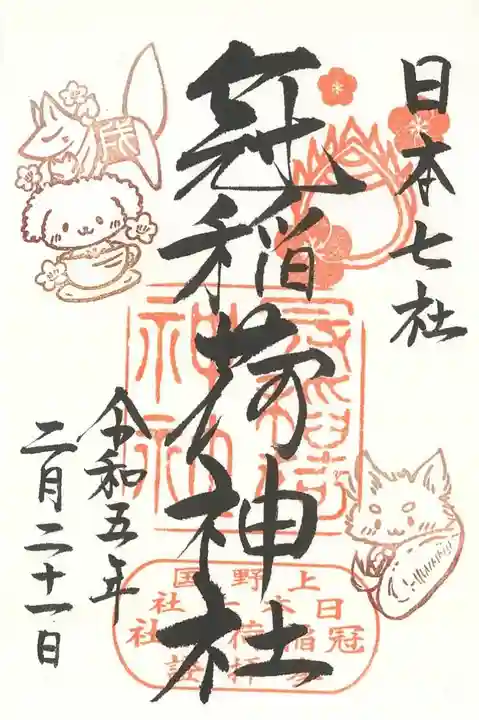 日本七社
冠稲荷神社
令和五年
二月二十一日
冠稲荷
神社
上野国
日本七社
冠稲荷神社
参拝証